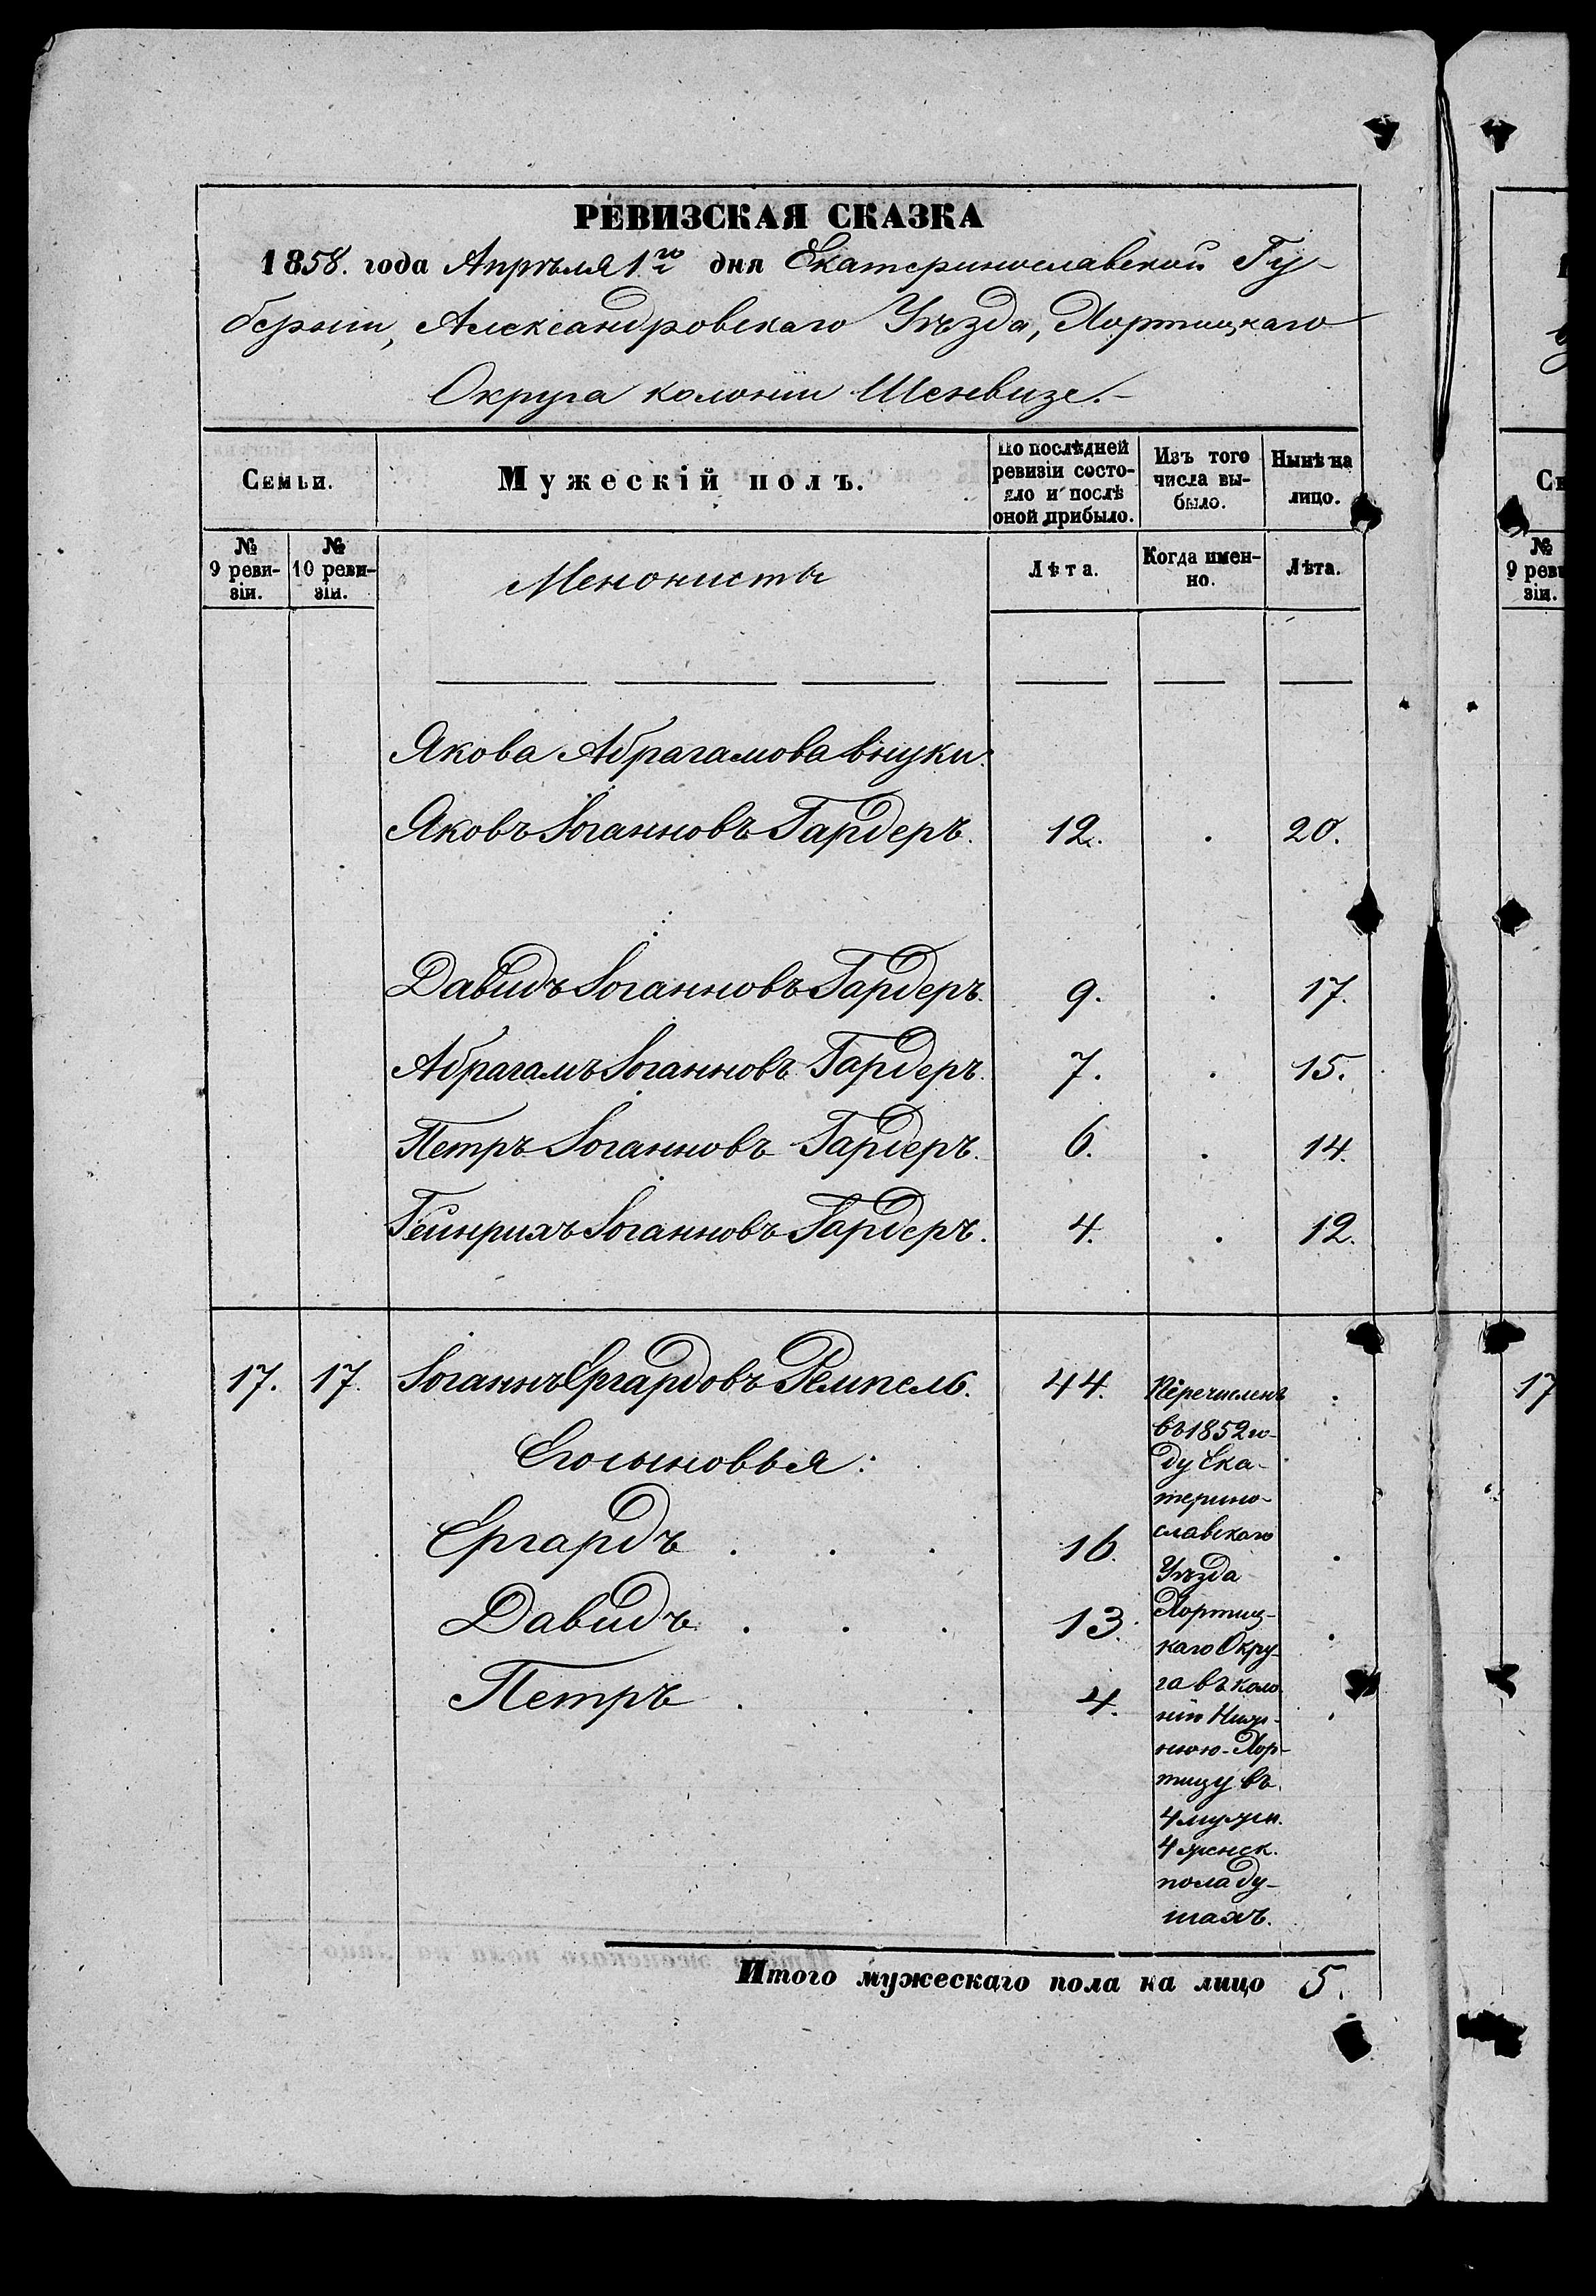 РЕВИЗСКАЯ СКАЗКА
1858. года Апрѣля 1го дня Екатеринославской Гу-
берніи, Александровскаго Уѣзда, Хортицкаго
Округа колоніи Шенвизе.-
Семьи.
Мужескій полъ.
По послѣдней
ревизіи состо-
яло и послѣ
оной прибыло.
Изъ того
числа вы-
было.
Нынѣ на
лицо.
№
9 реви-
зіи.
№
10 реви-
зіи.
Менонисты
Лѣта.
Когда имен-
но.
Лѣта.
Якова Абрагамова внуки:
Яковъ Іоганновъ Гардеръ. 12. . 20.
Давидъ Іоганновъ Гардеръ. 9. . 17.
Абрагамъ Іоганновъ Гардеръ. 7. . 15.
Петръ Іоганновъ Гардеръ. 6. . 14.
Гейнрихъ Іоганновъ Гардеръ. 4. . 12.
17. 17. Іоганнъ Ергардовъ Ремпель. 44.
Его сыновья:
Ергардъ . . . 16.
Давидъ . . . 13.
Петръ . . . 4.
Перечисленъ
въ 1852 го-
ду Ека-
терино-
славскаго
Уѣзда
Хортиц-
каго Окру-
га въ коло-
нію Ниж-
нюю-Хор-
тицу въ
4 мужн.
4 женск.
пола ду-
шахъ.
Итого мужескаго пола на лицо 5.
С
№
9 реви
зіи.
17